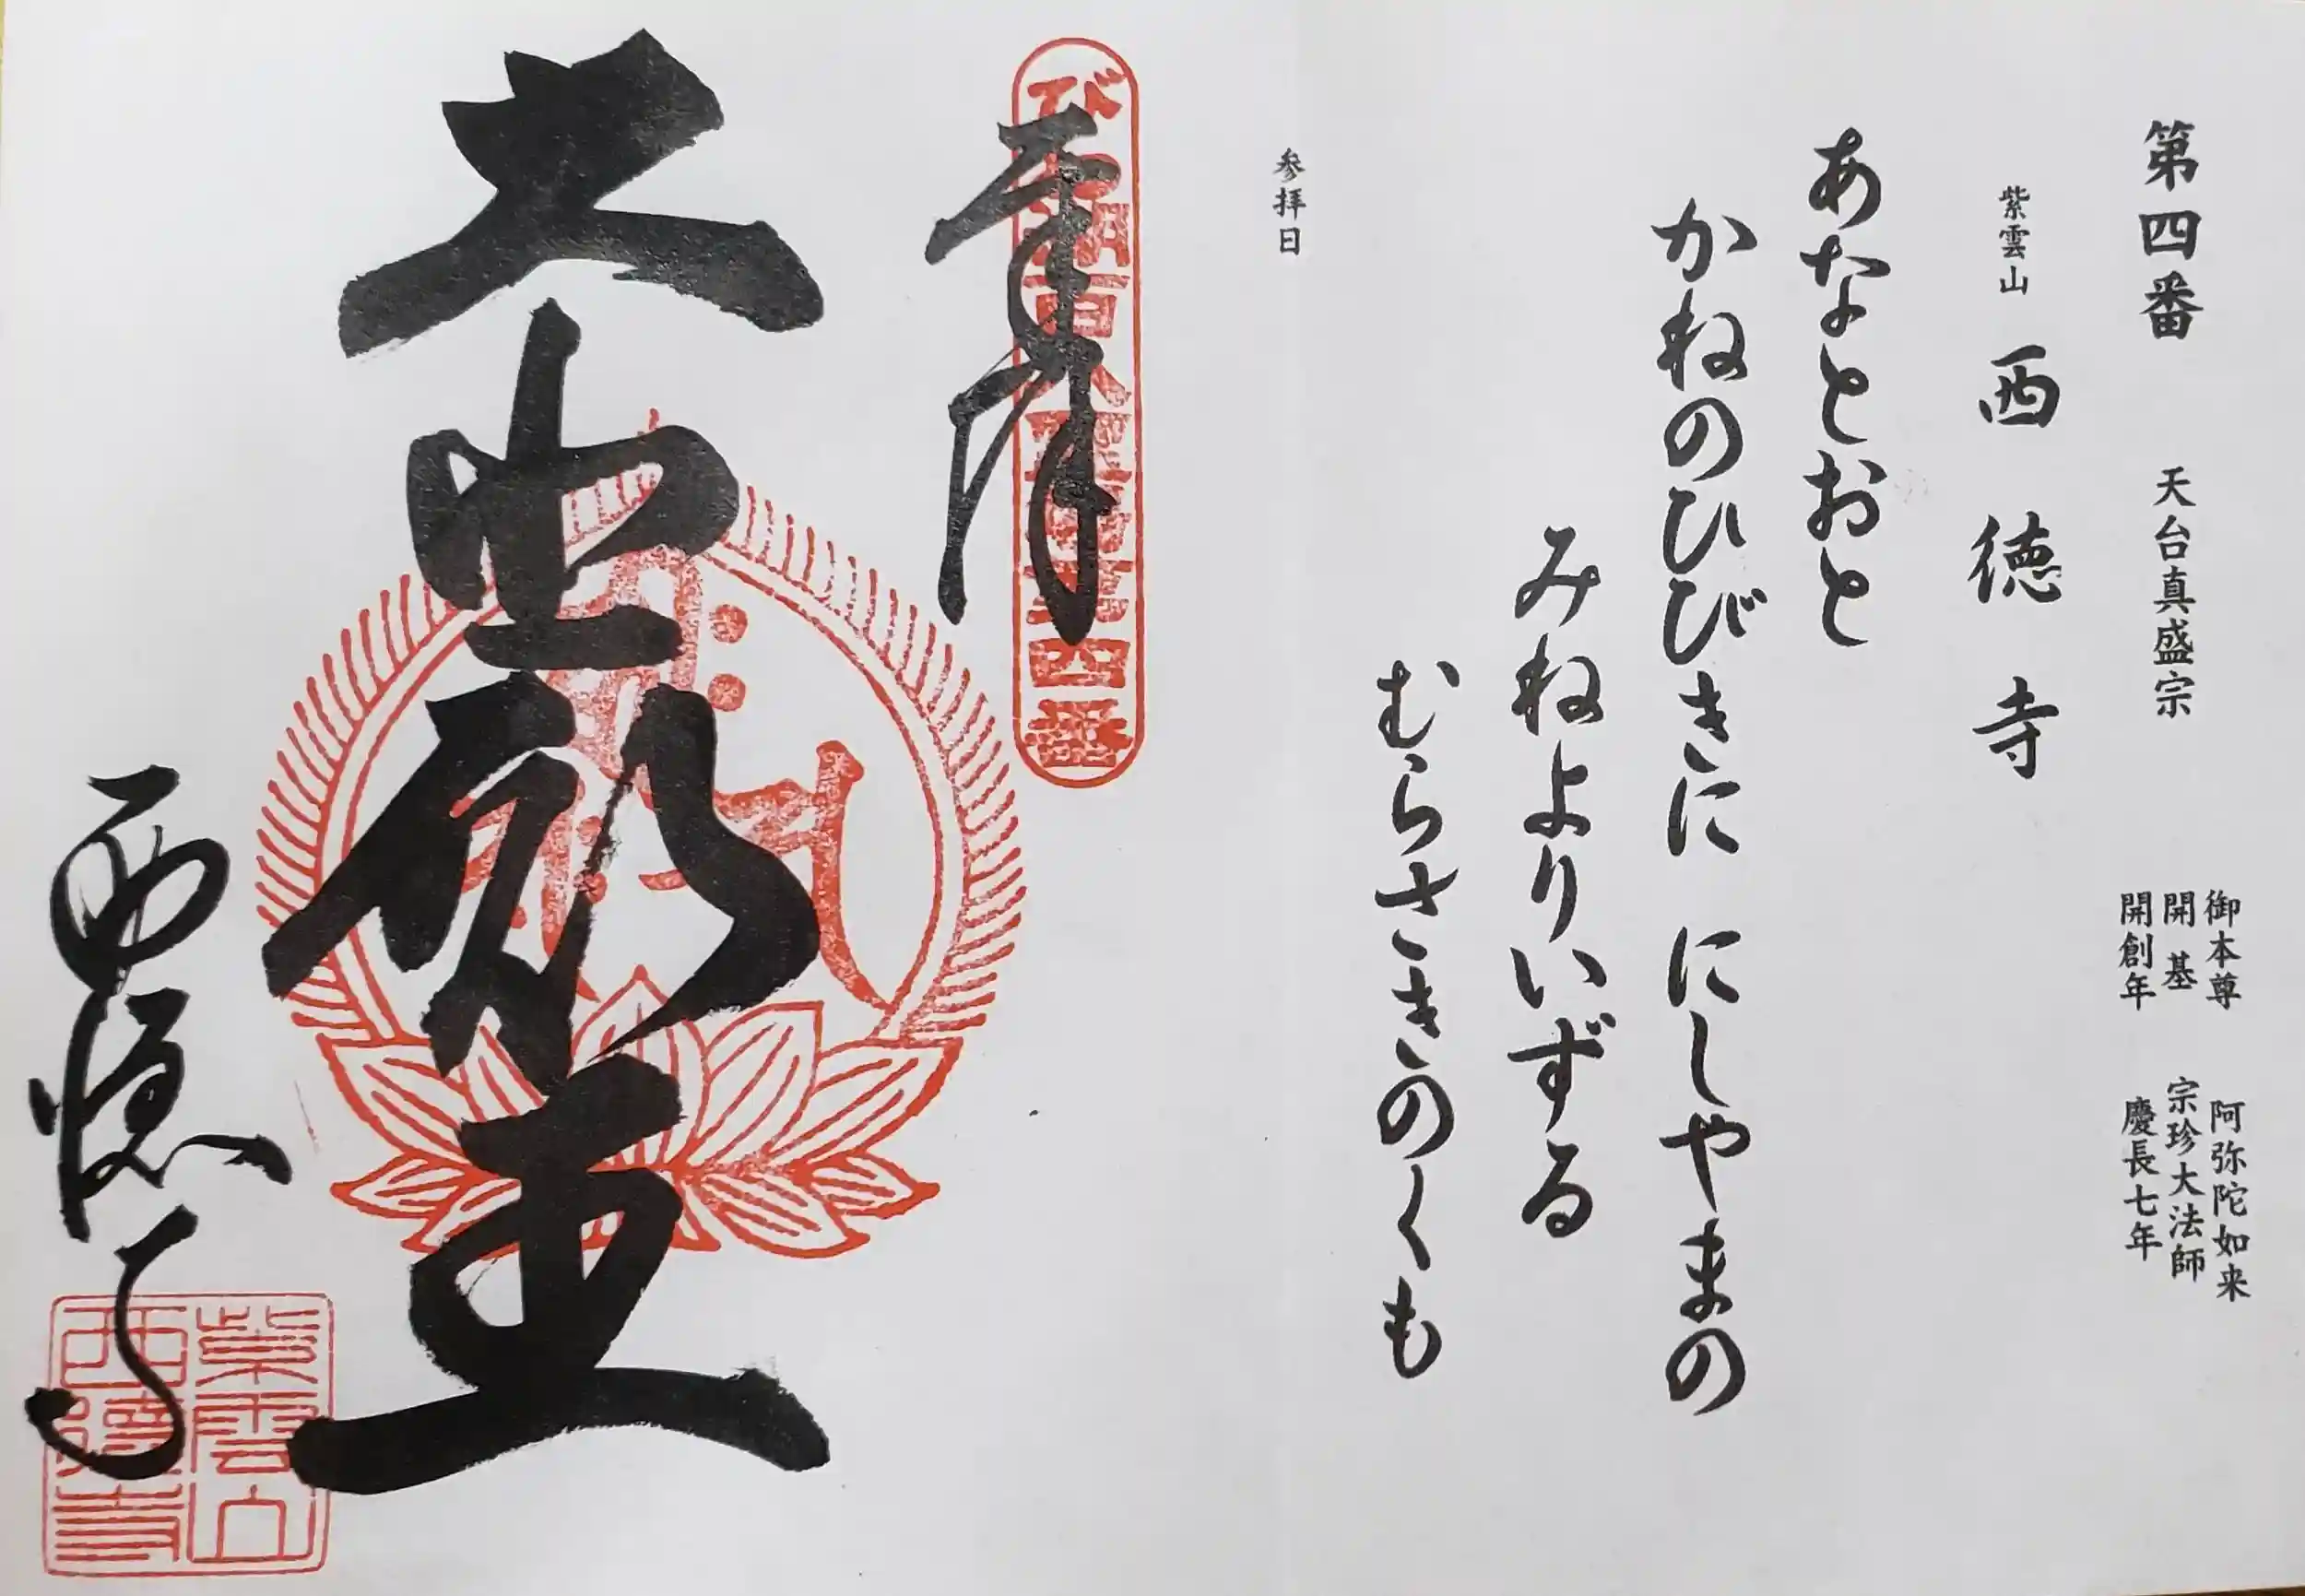 第四番
天台真盛宗
御本尊 阿弥陀如来
開基 宗珍大法師
開創年 慶長七年
紫雲山 西徳寺
あなとおと
かねのひびきに にしやまの
みねよりいずる
むらさきのくも
参拝日
びわ湖百八霊場第四番
奉拝
西徳寺
紫雲山
西徳寺